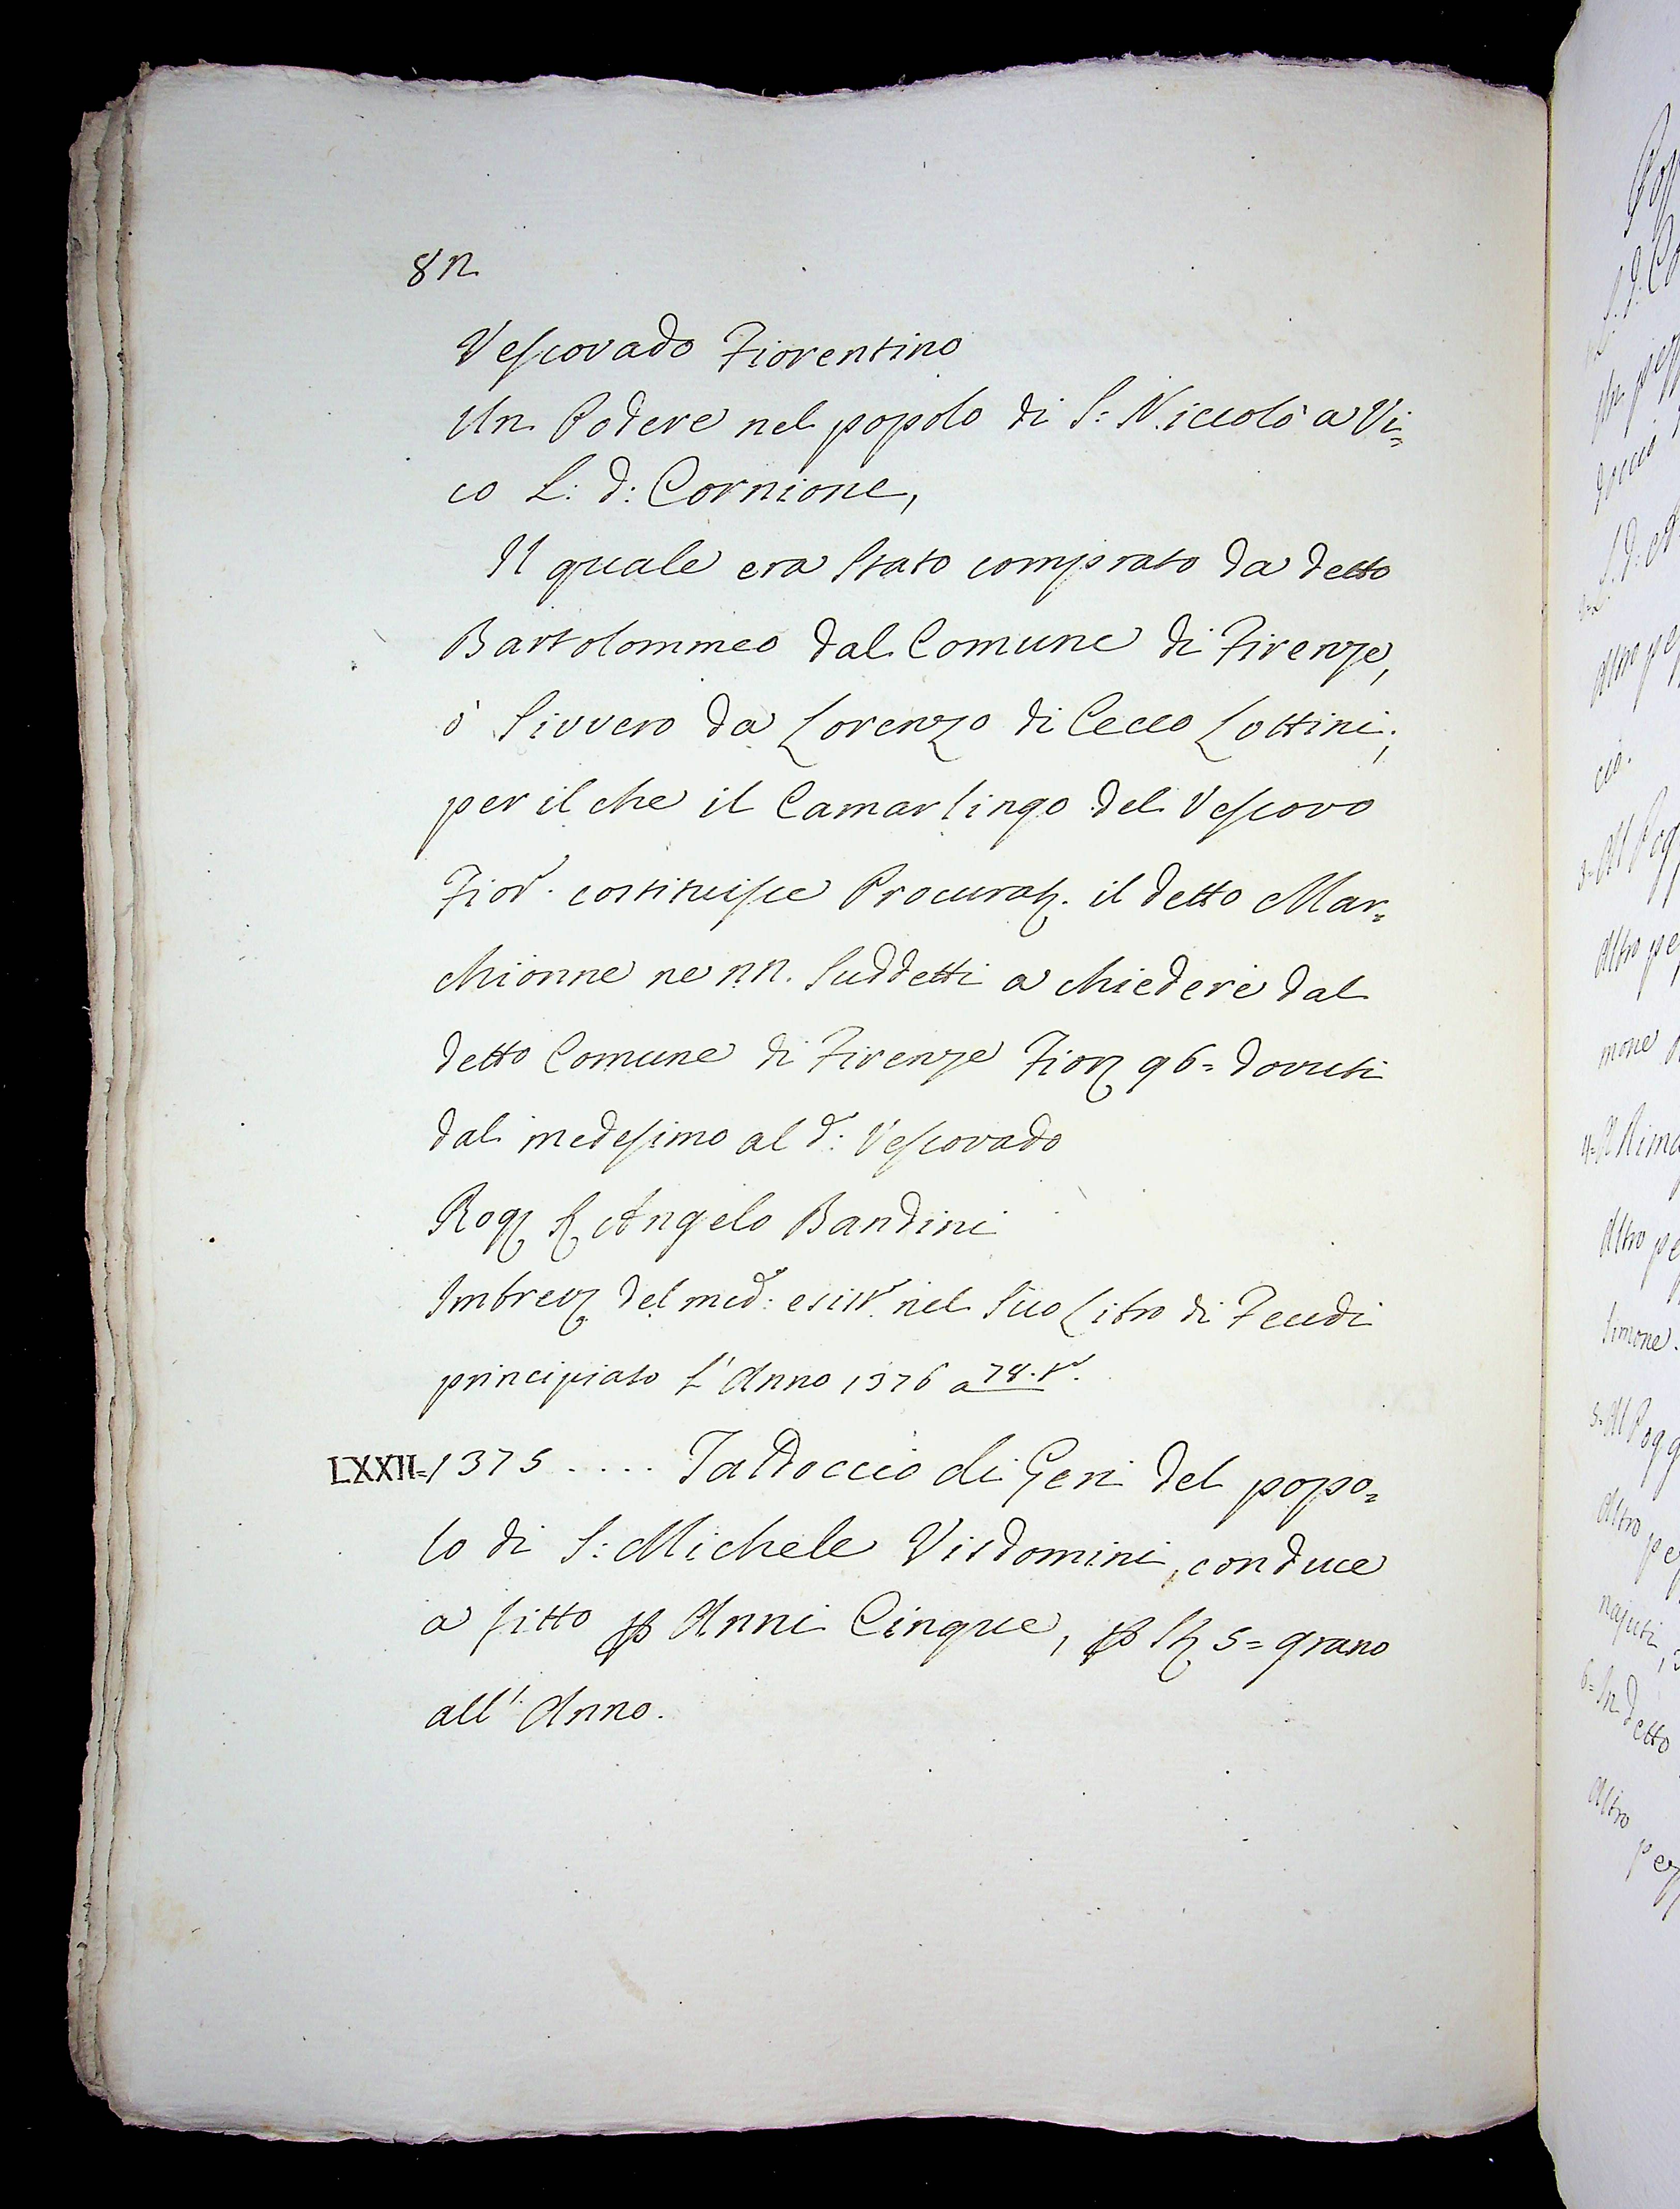 82
Vescovado Fiorentino
Un Podere nel popolo di S: Niccolò a Vi=
co L: d: Cornione,
Il quale era stato comprato da detto
Bartolommeo dal Comune di Firenze,
ò sivvero da Lorenzo di Cecco Lottini;
per il che il Camarlingo del Vescovo
Fior. costituisce Procurat. il detto Mar=
chionne ne nn. suddetti a chiedere dal
detto Comune di Firenze Fior 96= dovuti
dal medesimo al d: Vescovado
Rog S Angelo Bandini
Imbrev del med: esist. nel suo Libro di Feudi
principiato L'Anno 1376 a 78. t.
LXXII=1375 ..... Taddoccio di Geri del popo=
lo di S: Michele Visdomini, conduce
a fitto p Anni Cinque, p St 5= grano
all' Anno.